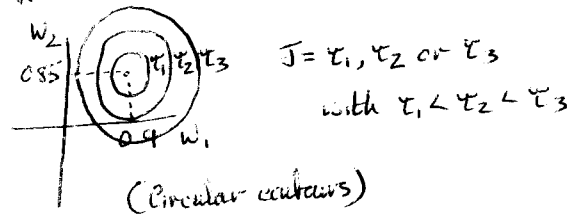 W₂
0.85
τ₁ τ₂ τ₃
J = τ₁, τ₂ or τ₃
with τ₁ < τ₂ < τ₃
0.4 W₁
(Circular contours)